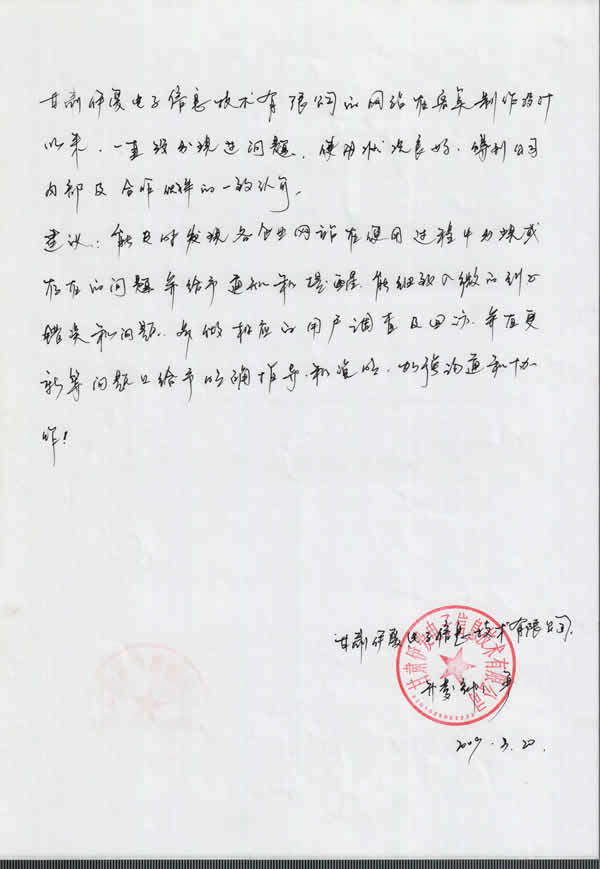 甘肃伊厦电子信息技术有限公司的网站在宏集制作设计
以来，一直没出现过问题，使用状况良好，得到公司
内部及合作伙伴的一致认可。
建议：能及时发现各企业网站在使用过程中出现或
存在的问题并给予通知和提醒，能细致入微的列出
错误和问题，多做相应的用户调查及回访，并在更
新等问题上给予明确指导和准的，加强沟通和协
作！
甘肃伊厦电子信息技术有限公司
甘肃伊厦电子信息技术有限公司
2009.3.20.